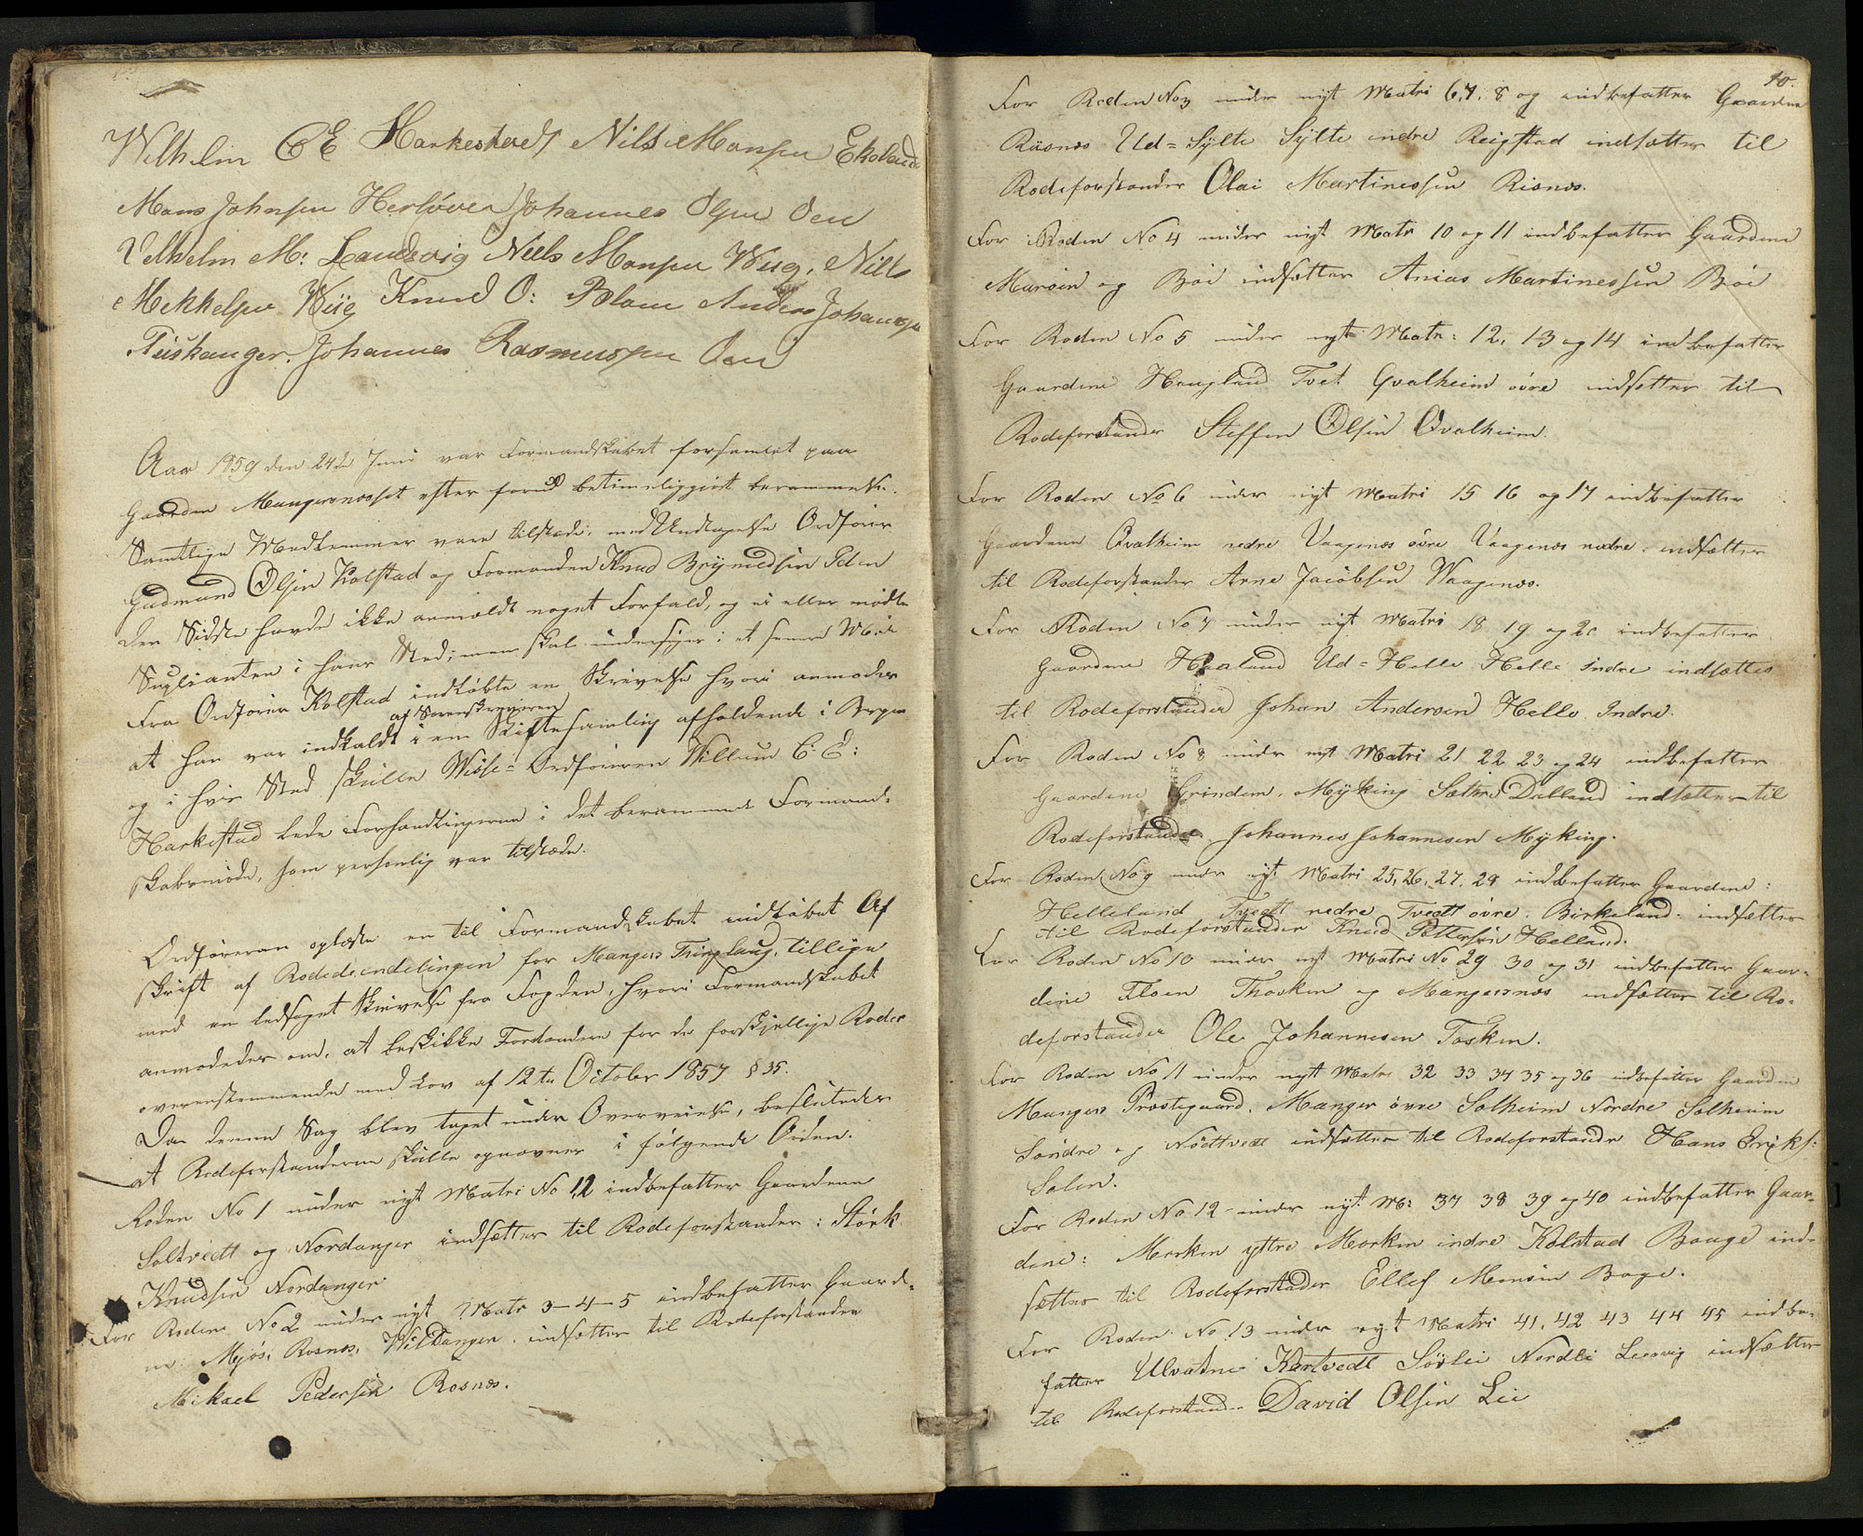 Wilhelm C E Harkestad Nils Monsen Ekeland
Mons Johnsen Herløver Johannes Olsen Oen
Velhelm M: Landsvig Niels Monsen Wiig, Nills
Mekkelsen Wiig Knud O: Blom Anders Johannsen
Tuskanger. Johannes Rasmussen Oen
Aar 1859 den 24de Juni var Formandskabet forsamlet paa
Gaarden Mangersnæsset efter forud betimeliggjort berammelse.
Samtlige Medlemmer vare tilstæde, med Undtagelse Ordfører
Gudmund Olsen Kolstad og Formanden Knud Brynildsen
Den Sidste havde ikke anmeldt noget Forfald, og ei eller mødte
Suplianten i hans Sted; men skal undersøges i et senere Møde
Fra Ordfører Kolstad indløbte en Skrivelse hvori anmodes
af Sorenskriveren
at han var indkaldt i en Skiftesamling afholdende i Bergen
og i hvis Sted skulle Viise-Ordføreren Willum C: E:
Harkestad lede Forhandlingerne i det berammede Formand-
skabsmøde, som personlig var tilstæde.
Ordføreren oplæste en til Formandskabet indløbet Af
skrift af Rodeinddelingen for Mangers Thinglaug, tillige
med en ledsaget Skrivelse fra Fogden, hvori Formandskabet
anmodedes om, at beskikke Forstandere for de forskjellige Roder
overensstemmende med Lov af 12te October 1857 § 35.
Da denne Sag blev taget under Overveielse, besluttedes
at Rodeforstanderne skulle opnævnes i følgende Orden.
Roden No 1 under nyt Matri No 1,2 indbefatter Gaardene
Soltvedt og Nordanger indsættes til Rodeforstander: Størk
Knudsen Nordanger
For Roden No 2 under nyt Matr 3-4-5 indbefatter Gaarde-
ne: Mjøs, Rosnes, Wildanger. indsættes til Rodeforstander
Mikael Pedersen Rosnes.
10.
For Roden No 3 under nyt Matri 6, 7, 8 og indbefatter Gaardene
Riisnes Ud-Sylte Sylte indre Reigstad indsættes til
Rodeforstander Olai Martinessen Risnes.
For Roden No 4 under nyt Matr 10 og 11 indbefatter Gaardene
Marøen og Bøe indsættes Anias Martinessen Bøe
For Roden No 5 under nyt Matr: 12, 13 og 14 indbefatter
Gaardene Haugland Tvet Qvalheim øvre indsættes til
Rodeforstander Steffen Olsen Qvalheim.
For Roden No 6 under nyt Matri 15 16 og 17 indbefatter
Gaardene Qvalheim nedre Vaagenes øvre Vaagenes nedre. indsættes
til Rodeforstander Arne Jacobsen Waagenes.
For Roden No 7 under nyt Matri 18 19 og 20 indbefatter
Gaardene Haaland Ud-Helle Helle Indre indsættes
til Rodeforstander Johan Andersen Helle Indre.
For Roden No 8 under nyt Matri 21 22 23 og 24 indbefatter
Gaardene Grindem, Myking Sætre Dalland indsættes til
Rodeforstander Johannes Johannesen Myking.
For Roden No 9 under nyt Matri 25, 26, 27, 28 indbefatter Gaardene:
Helleland Tvedt nedre Tvedt øvre. Birkeland. indsættes
til Rodeforstander Knud Pettersen Helland.
For Roden No 10 under nyt Matri No 29 30 og 31 indbefatter Gaar-
dene Floen Thosken og Mangersnes indsættes til Ro-
deforstander Ole Johannesen Tosken.
For Roden No 11 under nyt Matr 32 33 34 35 og 36 indbefatter Gaardene
Mangers Præstegaard. Manger øvre Solheim Nordre Solheim
Søndre og Nødtvedt indsættes til Rodeforstander Hans Eriks:
Solen.
For Roden No. 12 under nyt M: 37 38 39 og 40 indbefatter Gaar-
dene: Morken yttre Morken indre Kolstad Bauge ind-
sættes til Rodeforstader Ellef Monsen Boge.
For Roden No. 13 under nyt Matri 41, 42 43 44 45 indbe-
fatter Ulvatne Kartvedt Sørlie Nordli Leervig indsættes
til Rodeforstander David Olsen Lie